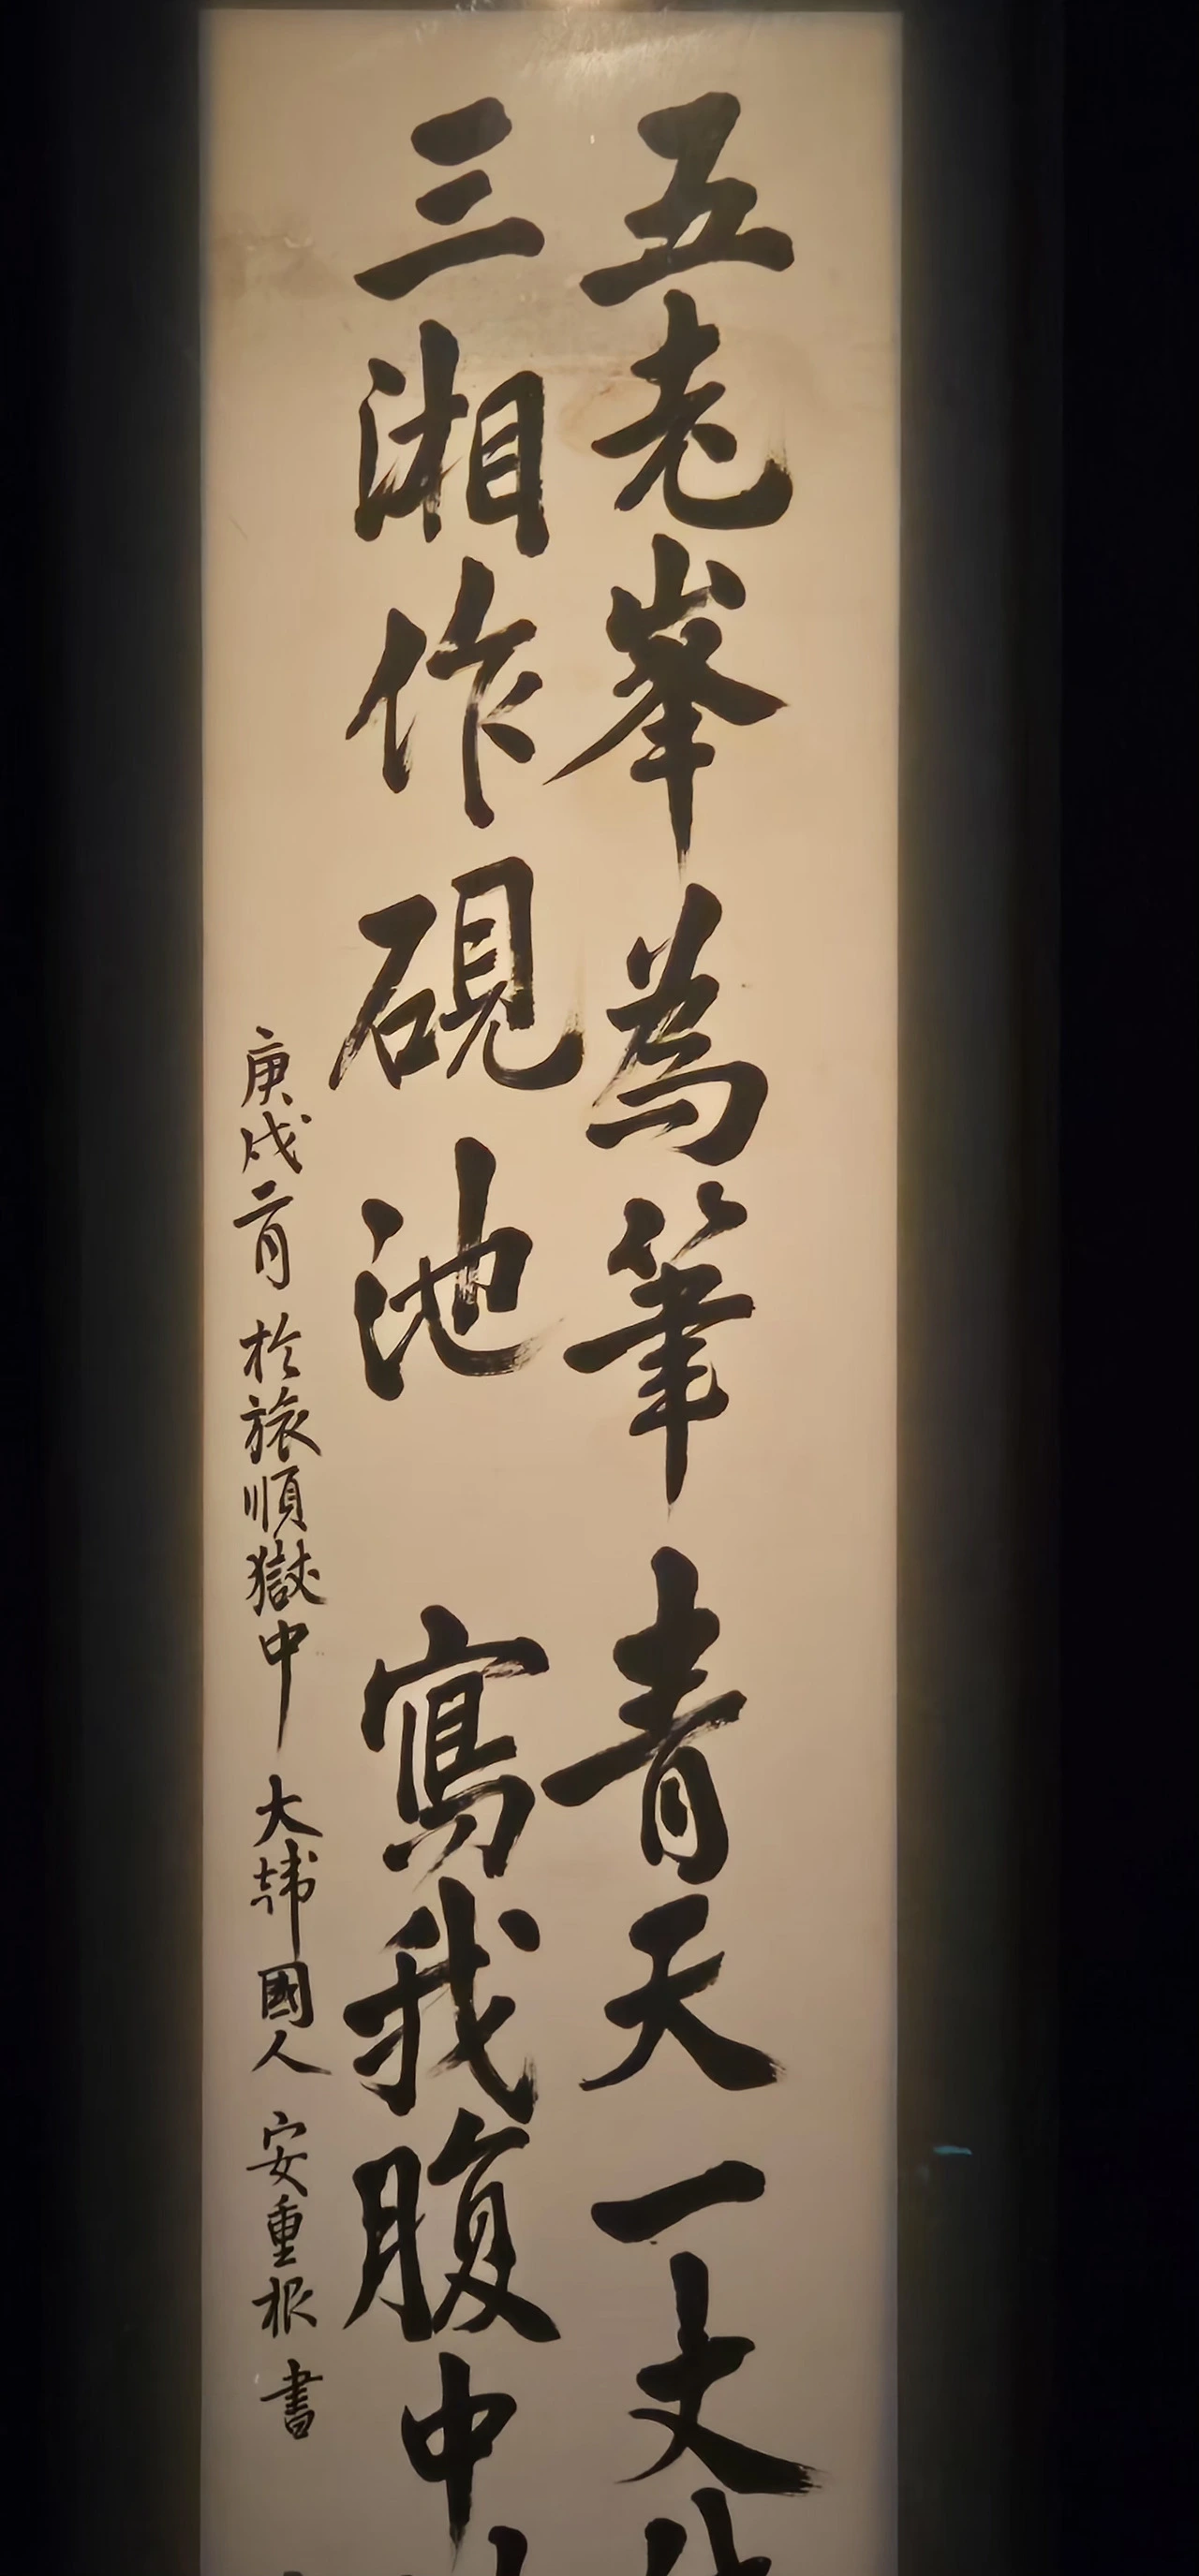 五老峯為筆青天一丈
三湘作硯池寫我腹中
庚戌二月於旅順獄中大韓國人安重根書